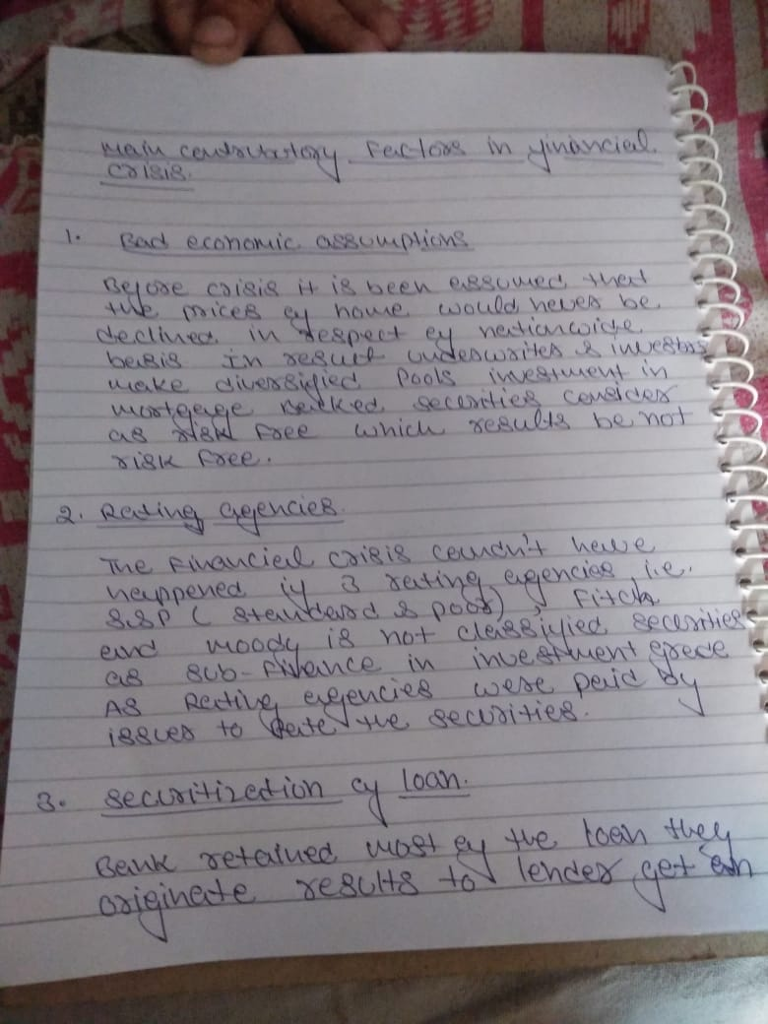 Main contributory Factors in financial
crisis.
1. Bad economic assumptions
Before crisis it is been assumed that
the prices of home would never be
declined in respect of nationwide
basis in result underwrites & investors
make diversified pools investment in
mortgage backed securities consider
as risk free which results be not
risk free.
2. Rating agencies.
The Financial crisis couldn't have
happened if 3 rating agencies i.e.
S&P (standard & poor), Fitch
and moody is not classified securities
as sub-finance in investment grade
As Rating agencies were paid by
issuer to rate the securities.
3. securitization of loan.
Bank retained most of the loan they
originate results to lender get an